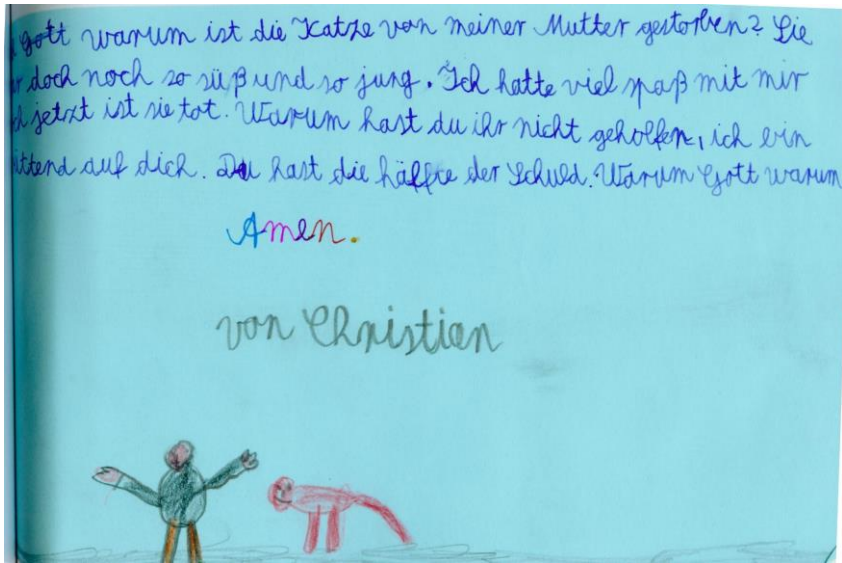 Gott warum ist die Katze von meiner Mutter gestorben? Sie
doch noch so süß und so jung. Ich hatte viel spaß mit mir
jetzt ist sie tot. Warum hast du ihr nicht geholfen, ich bin
auf dich. Du hast die hälfte der Schuld. Warum Gott warum
Amen.
von Christian